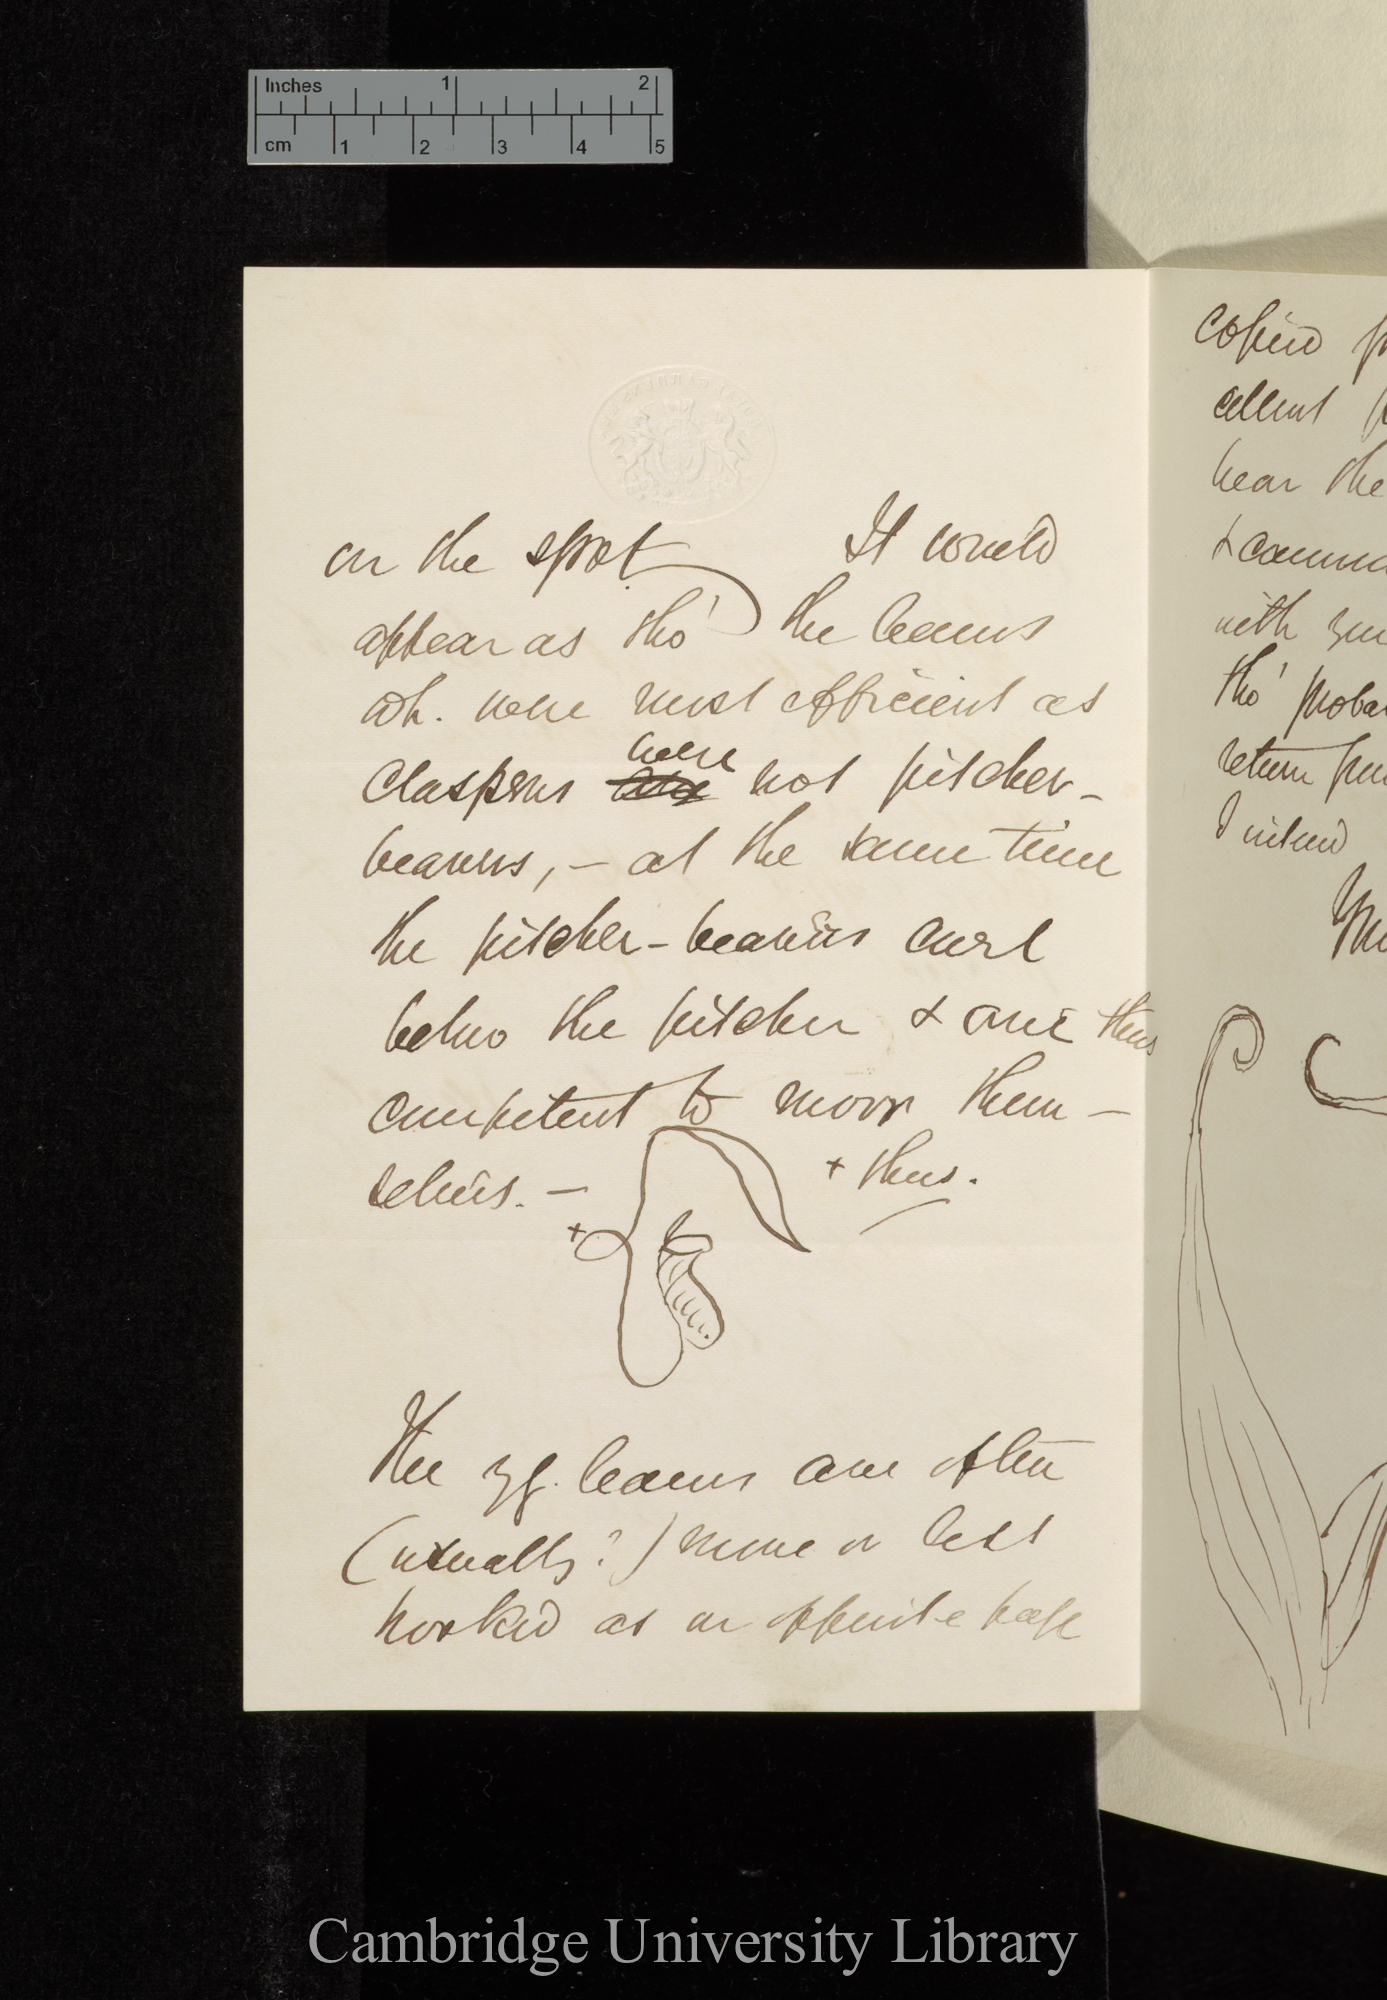 Inches 1 2
cm 1 2 3 4 5
on the spot It would
appear as tho' the leaves
wh. were most efficient as
claspers were not pitcher-
bearers, — at the same time
the pitcher-bearers curl
below the pitcher & are thus
competent to moor them—
selves. — + thus.
+
The yg. leaves are often
(usually?) more or less
hooked as on opposite page
copied
cellent
hear the
&
with
tho' proba
return
I intend
Cambridge University Library